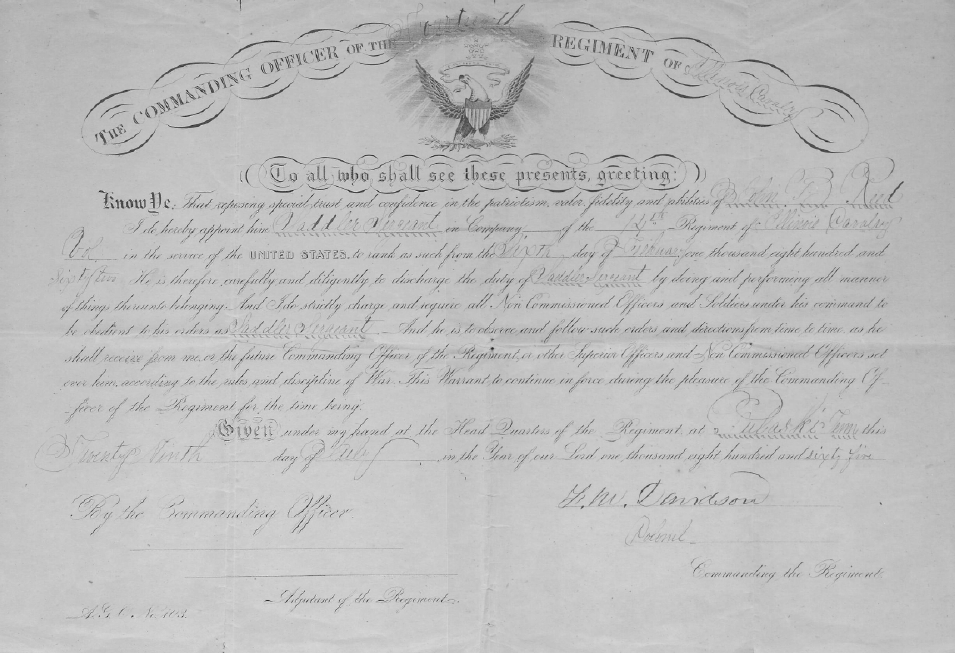 THE COMMANDING OFFICER OF THE Fourteenth REGIMENT OF Illinois Cavalry
To all who shall see these presents, greeting:
Know Ye, That reposing special trust and confidence in the patriotism, valor, fidelity and abilities of
I do hereby appoint him Saddler Sergeant in Company of the 14th Regiment of Illinois Cavalry
in the service of the UNITED STATES, to rank as such from the Sixth day of one thousand eight hundred and
He is therefore, carefully and diligently to discharge the duty of Saddler Sergeant by doing and performing all manner
of things thereunto belonging. And I do strictly charge and require all Non Commissioned Officers and Soldiers under his command to
be obedient to his orders as Saddler Sergeant. And he is to observe and follow such orders and directions from time to time, as he
shall receive from me, or the future Commanding Officer of the Regiment, or other Superior Officers and Non Commissioned Officers set
over him, according to the rules and discipline of War. This Warrant to continue in force during the pleasure of the Commanding Of-
-ficer of the Regiment for the time being.
Given under my hand at the Head Quarters of the Regiment at Pulaski Tenn this
Twenty Ninth day of July, in the Year of our Lord one thousand eight hundred and sixty five
F. M. Davidson
By the Commanding Officer.
Colonel
Commanding the Regiment.
Adjutant of the Regiment.
A.G.O. No. 103.